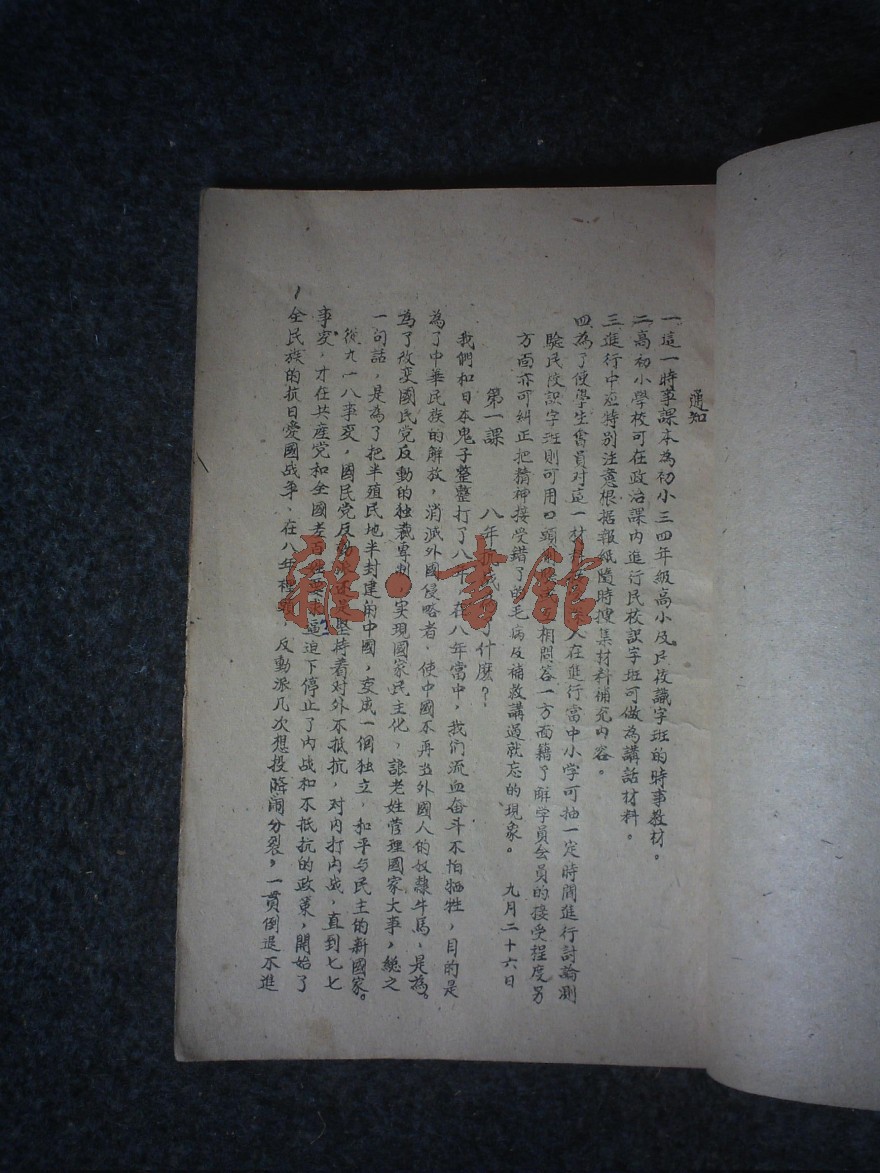 通知
一 這一時事課本為初小三四年級高小及民校識字班的時事教材。
二 高初小學校可在政治課內進行民校識字班可做為講話材料。
三 進行中应特別注意根据報紙隨時搜集材料補充內容。
四 為了使學生會員对這一材 人在進行當中小学可抽一定時間進行討論測
驗民校識字班則可用口頭 相問答一方面藉了解学員会員的接受程度另
方面亦可糾正把精神接受錯了的毛病及補救講過就忘的現象。 九月二十六日
第一課 八年抗战 了什麽？
我們和日本鬼子整整打了八年，在八年當中，我们流血奋斗不怕牺牲，目的是
為了中華民族的解放，消滅外國侵略者，使中國不再当外國人的奴隸牛馬，是為
為了改变國民党反動的独裁專制 实現國家民主化，讓老姓管理國家大事，總之
一句話，是為了把半殖民地半封建的中國，变成一個独立，和平与民主的新國家。
從九一八事变，國民党反動 坚持着对外不抵抗，对內打內战，直到七七
事变，才在共産党和全國老百姓要求逼迫下停止了內战和不抵抗的政策，開始了
全民族的抗日愛國战争、在八年 反動派几次想投降闹分裂，一貫倒退不進
1
雜·書館